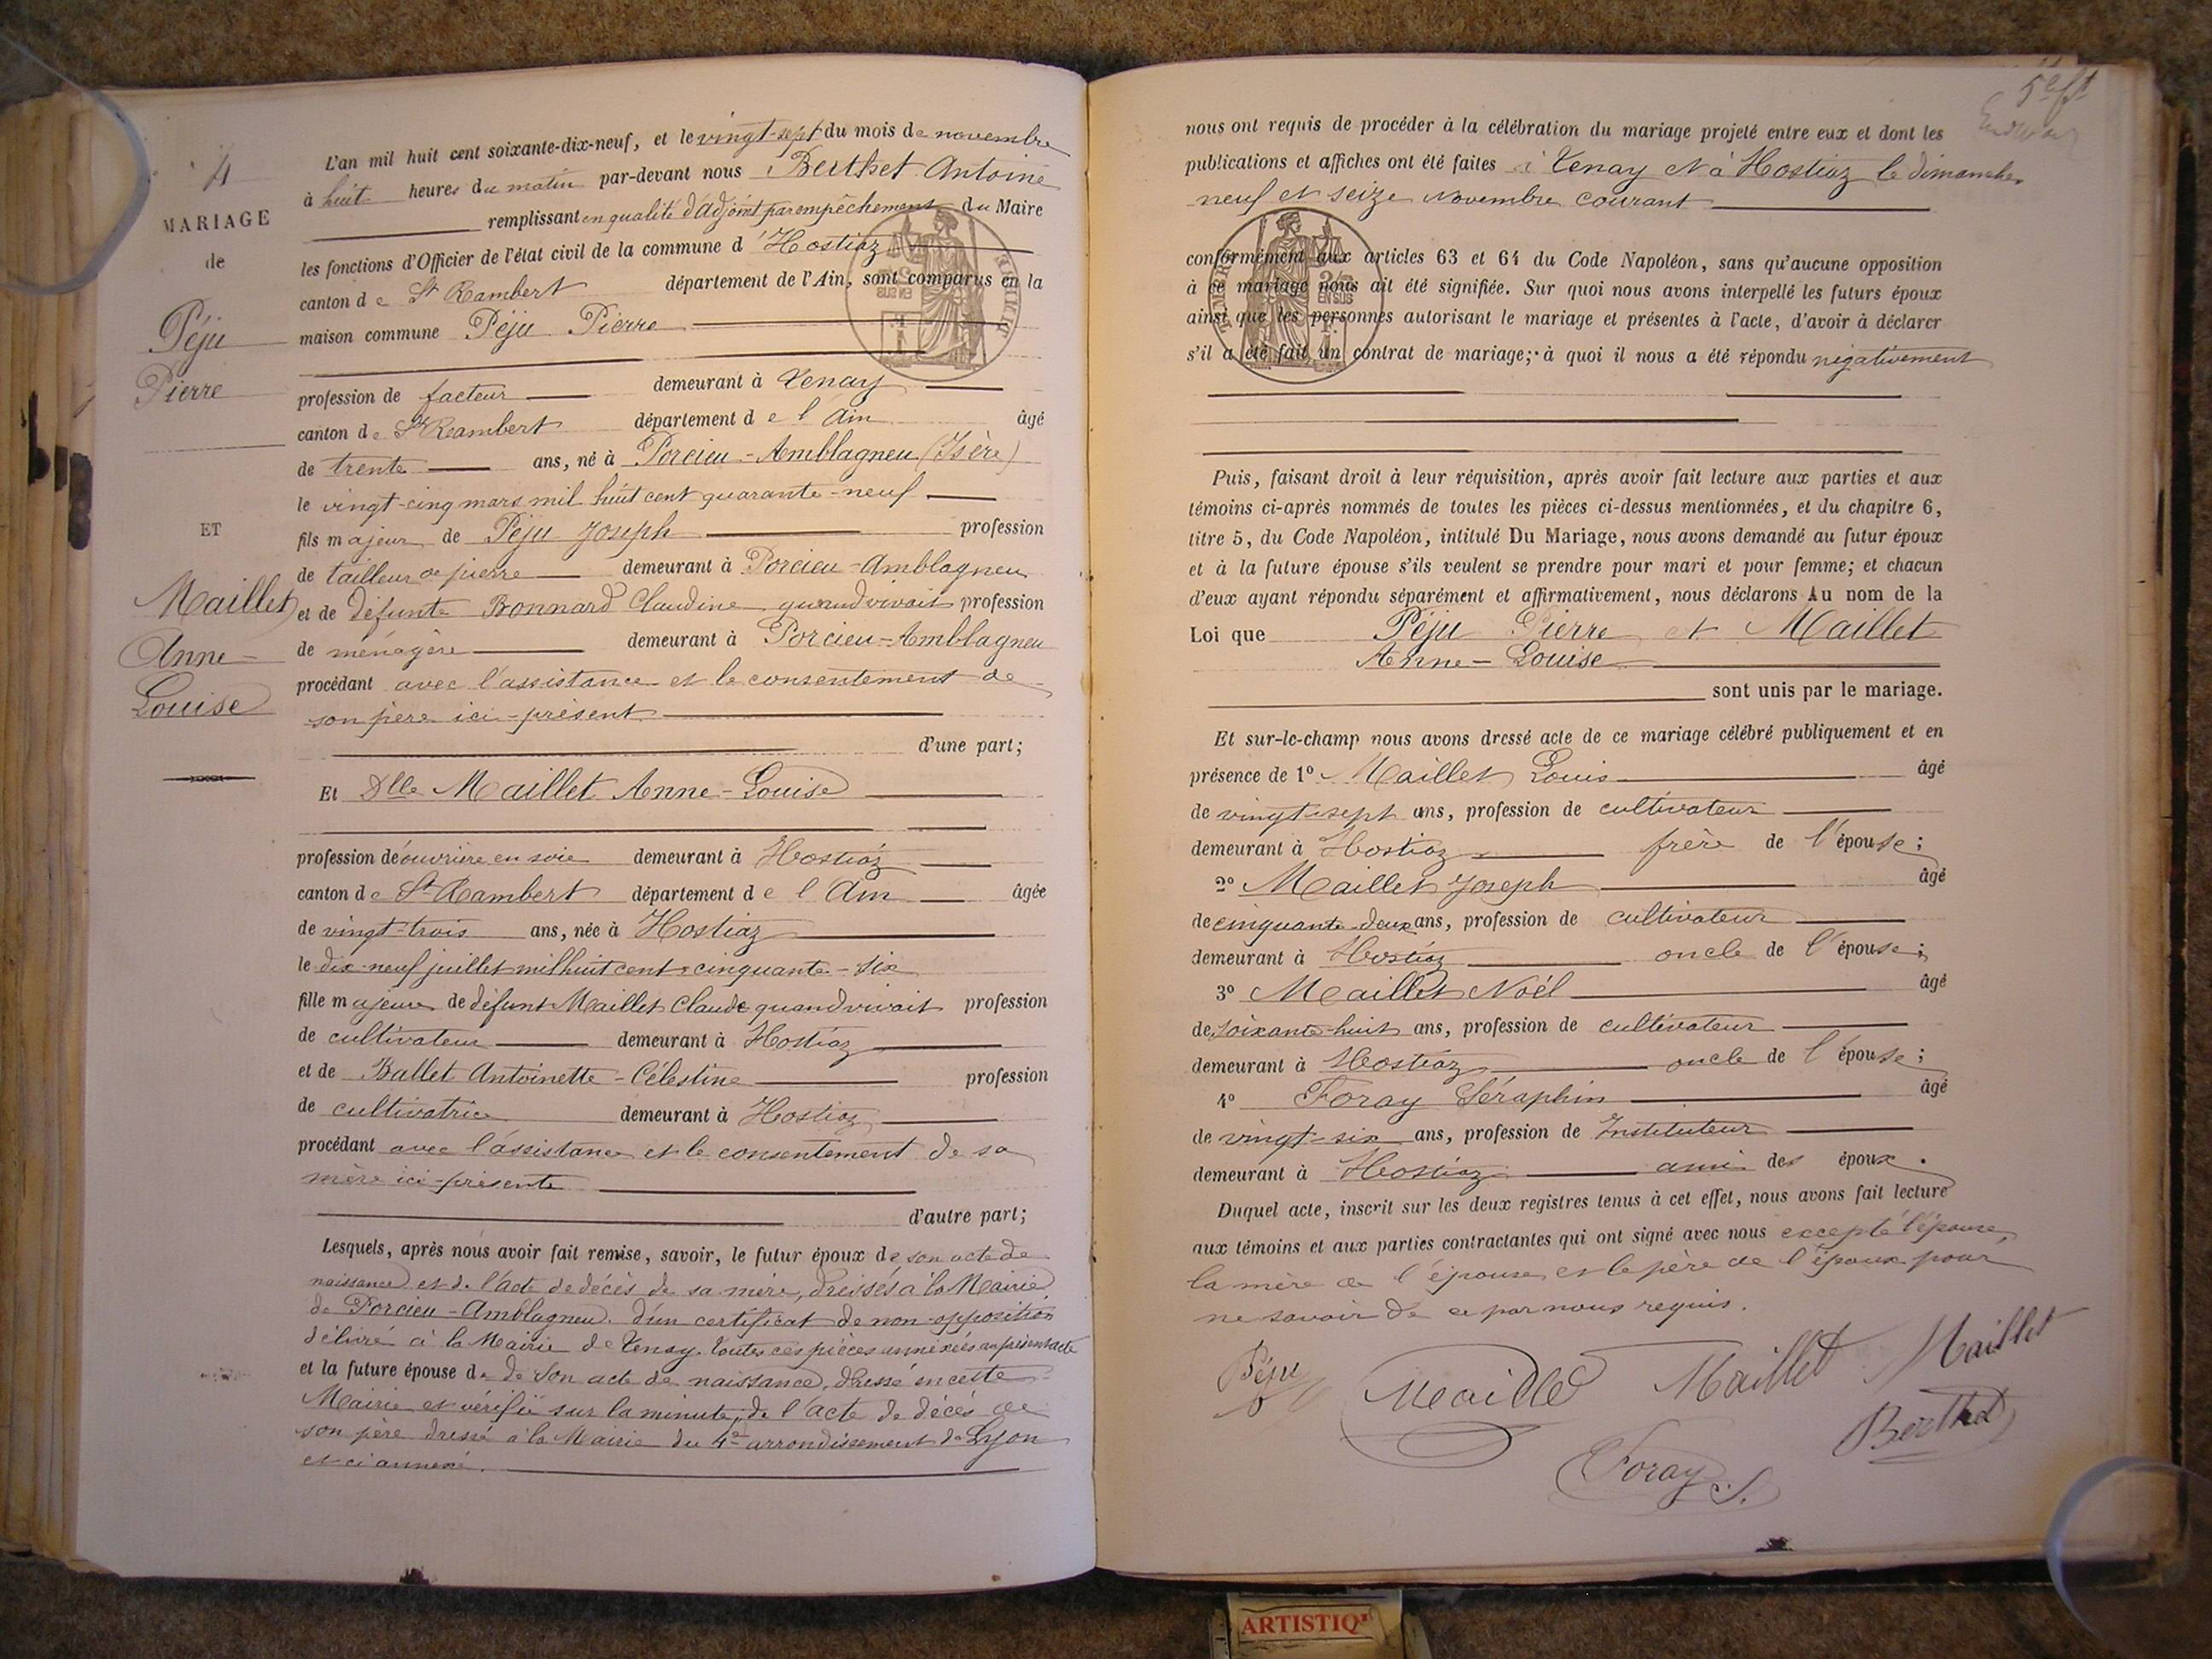 4
MARIAGE
de
Péju
Pierre
ET
Maillet
Anne-
Louise
L'an mil huit cent soixante-dix-neuf, et le vingt-sept du mois de novembre
à huit heures du matin par-devant nous Berthet Antoine
remplissant en qualité d'adjoint par empêchement du Maire
les fonctions d'Officier de l'état civil de la commune d'Hostiaz
canton de St Rambert département de l'Ain, sont comparus en la
maison commune Péju Pierre
profession de facteur demeurant à Tenay
canton de St Rambert département de l'Ain âgé
de trente ans, né à Porcieu-Amblagneu (Isère)
le vingt-cinq mars mil huit cent quarante-neuf
fils majeur de Péju Joseph profession
de tailleur de pierre demeurant à Porcieu-Amblagneu
et de défunte Bonnard Claudine quand vivait profession
de ménagère demeurant à Porcieu-Amblagneu
procédant avec l'assistance et le consentement de
son père ici-présent
d'une part;
Et Dlle Maillet Anne-Louise
profession de ouvrière en soie demeurant à Hostiaz
canton de St-Rambert département de l'Ain âgée
de vingt-trois ans, née à Hostiaz
le dix-neuf juillet mil huit cent cinquante-six
fille majeure de défunt Maillet Claude quand vivait profession
de cultivateur demeurant à Hostiaz
et de Ballet Antoinette-Célestine profession
de cultivatrice demeurant à Hostiaz
procédant avec l'assistance et le consentement de sa
mère ici-présente
d'autre part;
Lesquels, après nous avoir fait remise, savoir, le futur époux de son acte de
naissance et de l'acte de décès de sa mère, dressés à la Mairie
de Porcieu-Amblagneu. d'un certificat de non-opposition
délivré à la Mairie de Tenay. toutes ces pièces annexées au présent acte
et la future épouse de de son acte de naissance, dressé en cette
Mairie et vérifié sur la minute, de l'acte de décès de
son père dressé à la Mairie du 4e arrondissement de Lyon
et ci annexé.
5e ft
nous ont requis de procéder à la célébration du mariage projeté entre eux et dont les
publications et affiches ont été faites à Tenay et à Hostiaz le dimanche
neuf et seize Novembre courant
conformément aux articles 63 et 64 du Code Napoléon, sans qu'aucune opposition
à ce mariage nous ait été signifiée. Sur quoi nous avons interpellé les futurs époux
ainsi que les personnes autorisant le mariage et présentes à l'acte, d'avoir à déclarer
s'il a été fait un contrat de mariage; à quoi il nous a été répondu négativement
Puis, faisant droit à leur réquisition, après avoir fait lecture aux parties et aux
témoins ci-après nommés de toutes les pièces ci-dessus mentionnées, et du chapitre 6,
titre 5, du Code Napoléon, intitulé Du Mariage, nous avons demandé au futur époux
et à la future épouse s'ils veulent se prendre pour mari et pour femme; et chacun
d'eux ayant répondu séparément et affirmativement, nous déclarons Au nom de la
Loi que Péju Pierre et Maillet
Anne-Louise
sont unis par le mariage.
Et sur-le-champ nous avons dressé acte de ce mariage célébré publiquement et en
présence de 1° Maillet Louis âgé
de vingt-sept ans, profession de cultivateur
demeurant à Hostiaz frère de l'épouse;
2° Maillet Joseph âgé
de cinquante-deux ans, profession de cultivateur
demeurant à Hostiaz oncle de l'épouse;
3° Maillet Noél âgé
de soixante-huit ans, profession de cultivateur
demeurant à Hostiaz oncle de l'épouse;
4° Foray Séraphin âgé
de vingt-six ans, profession de Instituteur
demeurant à Hostiaz ami des époux.
Duquel acte, inscrit sur les deux registres tenus à cet effet, nous avons fait lecture
aux témoins et aux parties contractantes qui ont signé avec nous excepté l'épouse,
la mère de l'épouse et le père de l'époux pour
ne savoir de ce par nous requis.
Péju Maillet Maillet Maillet
Berthet
Foray S.
ARTISTIQ